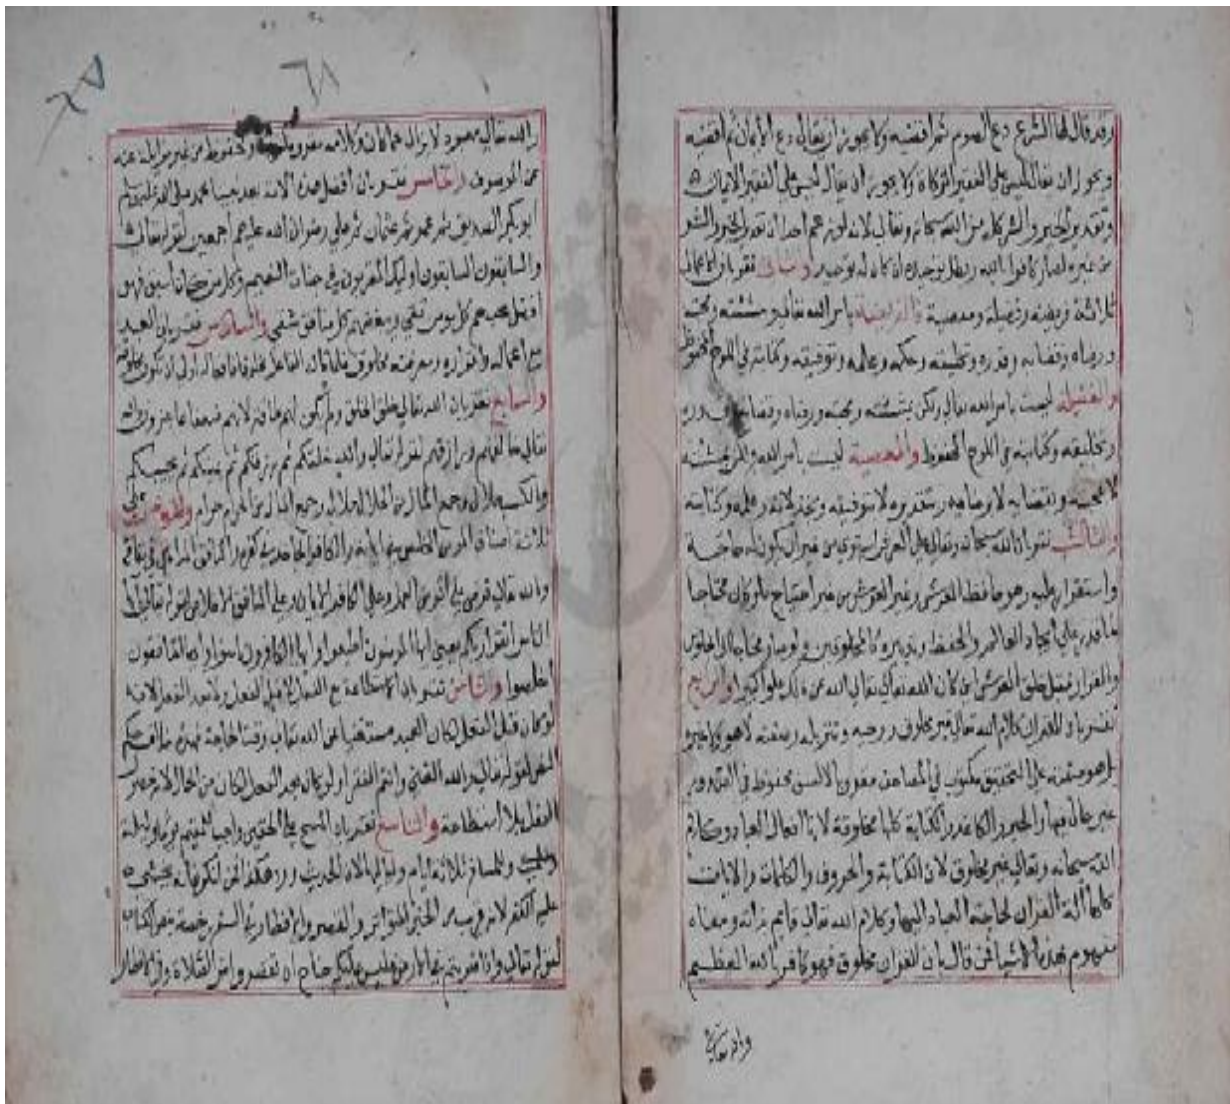 وقد قال لها الشرع دع الصوم ثم اقضيه ولا يجوز ان يقال دع الايمان ثم اقضيه
ويجوز ان يقال ليس على الفقير الزكاة ولا يجوز ان يقال ليس على الفقير الايمان
وتقدير الخير والشر كله من الله سبحانه وتعالى لانه لو زعم احد ان تقدير الخير والشر
من غيره لصار كافرا بالله وبطل توحيده ان كان له توحيد والثاني نقر بان الاعمال
ثلاثة فريضة وفضيلة ومعصية فالفريضة بامر الله تعالى ومشئته ومحبته
ورضاه وقضايه وقدره وتخليقه وحكمه وعلمه وتوفيقه وكتابته في اللوح المحفوظ
والفضيلة ليست بامر الله تعالى ولكن بمشئته ومحبته ورضاه وقضايه
وتخليقه وكتابته في اللوح المحفوظ والمعصية ليست بامر الله ولكن بمشئته
لا بمحبته وبقضايه لا برضايه وبتقديره لا بتوفيقه وبخذلانه وعلمه وكتابته
والثالث نقر بان الله سبحانه وتعالى على العرش استوى من غير ان يكون له حاجة
واستقرار عليه وهو حافظ العرش وغير العرش من غير احتياج فلو كان محتاجا
لما قدر على ايجاد العالم والحفظ وتدبيره كالمخلوقين ولو صار محتاجا الى الجلوس
والقرار فقبل خلق العرش اين كان الله تعالى تعالى الله عن ذلك علوا كبيرا والرابع
نقر بان القران كلام الله تعالى غير مخلوق ووحيه وتنزيله وصفته لا هو ولا غيره
بل هو صفته على التحقيق مكتوب في المصاحف مقروء بالالسن محفوظ في الصدور
غير حال فيها والحبر والكاغد والكتابة كلها مخلوقة لانها افعال العباد وكلام
الله سبحانه وتعالى غير مخلوق لان الكتابة والحروف والكلمات والايات
كلها الة القران لحاجة العباد اليها وكلام الله تعالى قايم بذاته ومعناه
مفهوم بهذه الاشيا فمن قال بان القران مخلوق فهو كافر بالله العظيم
والله تعالى
والله تعالى معبود لا يزال عما كان وكلامه مقروء ومحفوظ من غير مزايلة عنه
عن الموصوف والخامس نقر بان افضل هذه الامة بعد نبينا محمد صلى الله عليه وسلم
ابو بكر الصديق ثم عمر ثم عثمان ثم علي رضوان الله عليهم اجمعين لقوله تعالى
والسابقون السابقون اوليك المقربون في جنات النعيم وكل من كان اسبق فهو
افضل يحبهم كل مومن تقي ويبغضهم كل منافق شقي والسادس نقر بان العبد
مع اعماله واقراره ومعرفته مخلوق فلما كان الفاعل مخلوقا فافعاله اولى ان تكون مخلوقة
والسابع نقر بان الله تعالى خلق الخلق ولم يكن لهم طاقة لانهم ضعفا عاجزون والله
تعالى خالقهم ورازقهم لقوله تعالى والله خلقكم ثم رزقكم ثم يميتكم ثم يحييكم
والكسب حلال وجمع المال من الحلال حلال وجمع المال من الحرام حرام والناس على
ثلاثة اصناف المومن المخلص في ايمانه والكافر الجاحد في كفره والمنافق المداهن في نفاقه
والله تعالى فرض على المومن العمل وعلى الكافر الايمان وعلى المنافق الاخلاص لقوله تعالى يا ايها
الناس اتقوا ربكم يعني ايها المومنون اطيعوا وايها الكافرون امنوا وايها المنافقون
اخلصوا والثامن نقر بان الاستطاعة مع الفعل لا قبل الفعل ولا بعد الفعل لانه
لو كان قبل الفعل لكان العبد مستغنيا عن الله تعالى وقت الحاجة فهذا خلاف حكم
النص لقوله تعالى والله الغني وانتم الفقرا ولو كان بعد الفعل لكان من المحال لانه حصول
الفعل بلا استطاعة والتاسع نقر بان المسح على الخفين واجب للمقيم يوما وليلة
وللمسافر ثلاثة ايام ولياليها لان الحديث ورد هكذا فمن انكر فانه يخشى
عليه الكفر لانه قريب من الخبر المتواتر والقصر والافطار في السفر رخصة بنص الكتاب
لقوله تعالى واذا ضربتم في الارض فليس عليكم جناح ان تقصروا من الصلاة وفي الافطار
٦٨